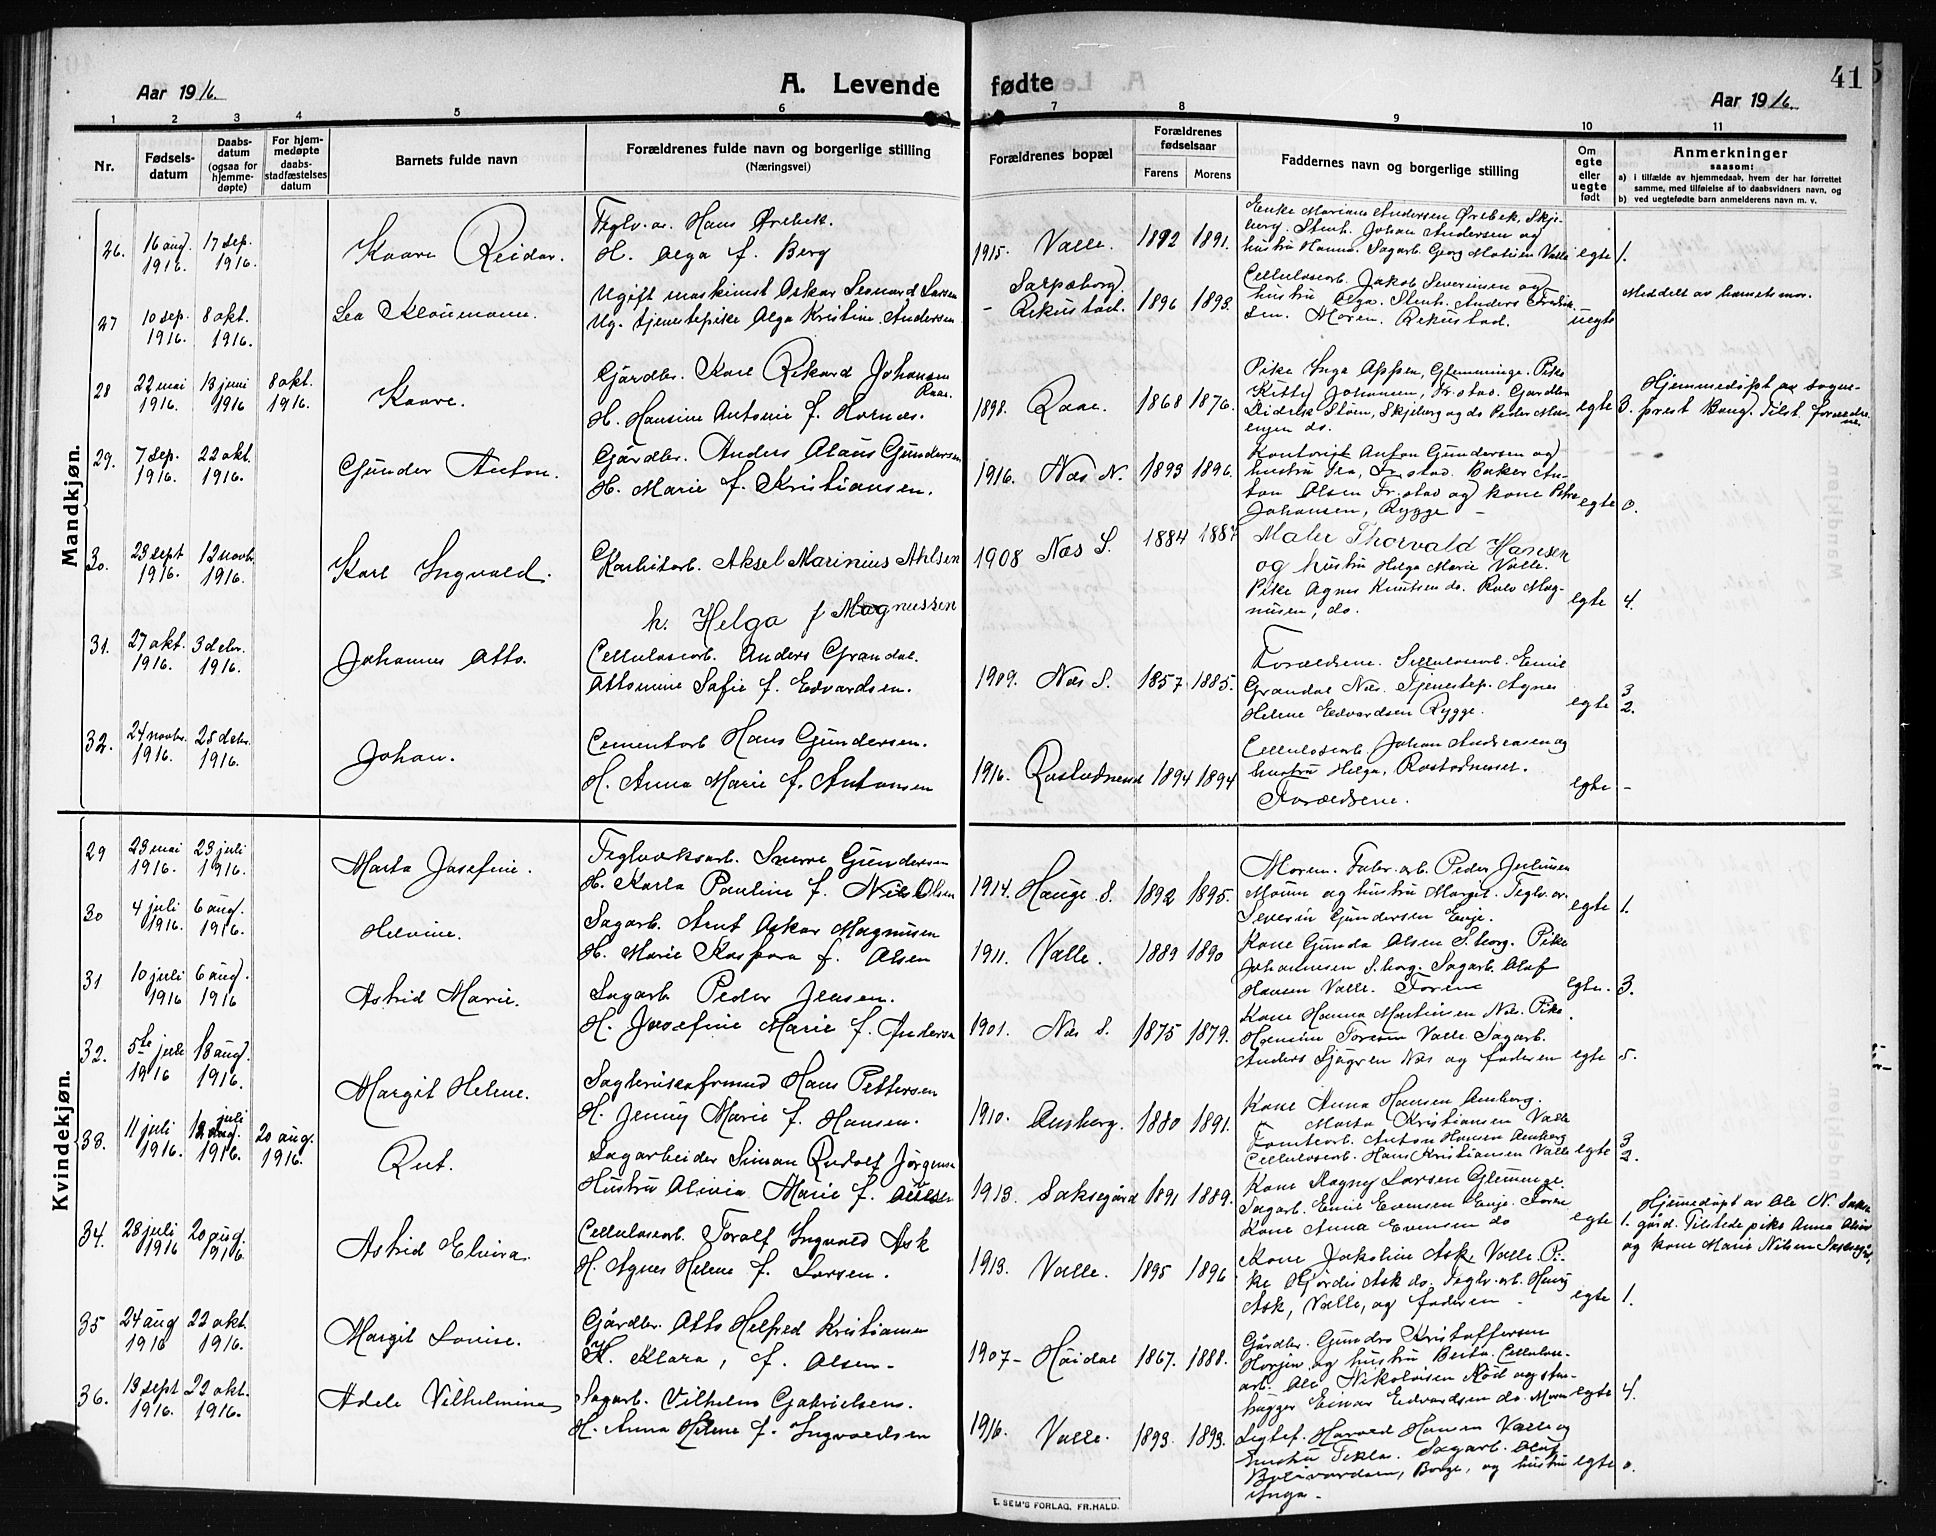 Aar 1916.
A. Levende fødte
41
Aar 1916.
1 2 3 4 5 6 7 8 9 10 11
Nr.
Fødsels-
datum
Daabs-
datum
(ogsaa for
hjemme-
døpte)
For hjem-
medøpte
daabs-
stadfæstelses
datum
Barnets fulde navn
Forældrenes fulde navn og borgerlige stilling
(Næringsvei)
Forældrenes bopæl
Forældrenes
fødselsaar
Farens Morens
Faddernes navn og borgerlige stilling
Om
egte
eller
uegte
født
Anmerkninger
saasom:
a) i tilfælde av hjemmedaab, hvem der har forrettet
samme, med tilføielse af to daabsvidners navn, og
b) ved uegtefødte barn anmelderens navn m. v.
Mandkjøn.
26. 16 aug. 1916. 17 sep. 1916. Kaare Reidar.
Teglv.a. Hans Ørebek.
H. Olga f. Berg
1915. Valle. 1892 1891.
Enke Mariane Andersen Ørebek, Skje-
berg. Stenh. Johan Andersen og
hustru Hanna. Sagarb. Georg Matisen Valle
egte 1.
27 10 sep. 1916. 8 okt. 1916.
Ugift maskinist Oskar Leonard Larsen
Ug. tjenestepike Olga Kristine Andersen
- Sarpsborg.
Rekustad. 1896 1898.
Cellulosearb. Jakob Severinsen og
hustru Olga. Stenh. Anders
sen. Moren. Rekustad.
uegte
Meddelt av barnets mor.
28 22 mai 1916. 13 juni 1916 8 okt. 1916. Kaare.
Gårdbr. Karl Rikard Johansen
Raae.
H. Hansine Antonie f. Hornæs.
1898. Raae. 1868 1876.
Pike Inga Appsen, Glemminge. Pike
Kitty Johansen, Fr.stad. Gårdbr.
Didrik Støm, Skjeberg og do Peder
engen do.
egte 3.
Hjemmedøpt av sogne-
prest Bang. Tilst. forældre-
ne.
29. 7 sep. 1916. 22 okt. 1916. Gunder Anton.
Gårdbr. Anders Olaus Gundersen
H. Marie f. Kristiansen.
1916. Næs N. 1893 1896.
Kontorist Anton Gundersen og
hustru Fr.stad. Baker An-
ton Olsen Fr.stad og kone Petra
Johansen, Rygge -
egte 0.
30. 23 sept 1916. 12 novbr. 1916. Karl Ingvald.
Aksel Marinius Ahlsen
h. Helga f Magnussen
1908 Næs S. 1884 1887
Maler Thorvald Hansen
og hustru Helga Marie Valle.
Pike Agnes Knutsen do. Rolv Mag-
nusen, do.
egte 4.
31. 27 okt. 1916. 3 debr. 1916. Johannes Otto.
Cellulosearb. Anders Grandal.
Ottomine Sofie f. Edvardsen.
1909. Næs S. 1857 1885.
Forældrene. Cellulosearb. Emil
Grandal Næs. Tjenestep. Agnes
Helene Edvardsen Rygge.
egte 3
2.
32. 24 novbr. 1916. 25 debr. 1916. Johan.
Cementarb Hans Gundersen.
H. Anna Marie f. Antonsen
1916. 1894 1894
Cellulosearb. Johan Andreasen og
hustru Helga,
Forældrene.
egte -
Kvindekjøn.
29 23 mai 1916. 23 juli 1916. Marta Josefine.
Teglverksarb. Sverre Gundersen
H. Karla Pauline f. Nils Olsen
1914. Hauge S. 1892 1895.
Moren. Fabr.arb. Peder Juliusen
Moum og hustru Margit. Teglv.ar.
Severin Gundersen Enje.
egte 1.
30 4 juli 1916. 6 aug. 1916. Helvine.
Sagarb. Arnt Oskar Magnusen
H. Marie Kaspara f. Olsen
1911. Valle. 1889 1890
Kone Gunda Olsen S.borg. Pike
Johannesen S.borg. Sagarb. Olaf
Hansen Valle.
egte. 3.
31 10 juli 1916 6 aug. 1916 Astrid Marie.
Sagarb. Peder Jensen.
H. Josefine Marie f. Anderse
1901. Næs S. 1875 1879.
Kone Hanna Martinsen Næs. Pike
Valle Sagarb.
Anders Sjøgren Næs og faderen
egte 5.
32. 5te juli 1916 18 aug. 1916. Margit Helene.
Hans Pettersen
H. Jenny Marie f. Hansen.
1910. 1880 1891.
Kone Anna Hansen
Marta Kristiansen Valle
Tomtearb. Anton Hansen
Cellulosearb. Hans Kristiansen Valle
egte 3
2.
33. 11 juli 1916. 12 juli 1916. 20 aug. 1916. Rut.
Sagarbeider Simon Rudolf Jørgense
Hustru Olivia Marie f. Nilsen
1913. Saksegård 1891 1889.
Kone Ragny Larsen Glemminge.
Sagarb. Emil Evensen Enje.
Kone Anna Evensen do
egte 1.
Hjemmedøpt av Ole N. Sakse-
gård. Tilstede pike Anna Olsen
og kone Marie Nilsen Saksegård,
34. 28 juli 1916 20 aug. 1916. Astrid Elvira.
Cellulosearb. Toralf Ingvald Ask
H. Agnes Helene f. Larsen.
1913. Valle. 1895 1896
Kone Jakoline Ask Valle. Pi-
ke Hjørdis Ask do. Teglv.arb. Henry
Ask, Valle, og faderen -
egte 1.
35 24 aug 1916 22 okt. 1916. Margit Louise.
Gårdbr. Otto Helfred Kristiansen
H. Klara, f. Olsen -
1907 - Høidal 1867. 1888.
Gårdbr. Gundro Kristoffersen
Horgen og hustru Berta. Cellulose-
arb. Ole Nikolaisen Rød og sten-
hugger Einar Edvardsen do. Moren
egte 4.
36. 13 sept 1916. 22 okt. 1916. Adele Vilhelmina
Sagarb. Vilhelm Gabrielsen.
H. Anna Helene f. Ingvaldsen
1916. Valle. 1893. 1893.
Harald Hansen Valle og
hustru Tekla. Sagarb. Olaf
Borge, og hustru
Inga -
egte 0.
E. SEM'S FORLAG, FR.HALD.